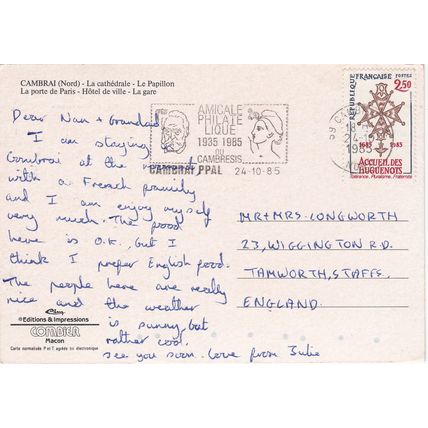 CAMBRAI (Nord) - La cathédrale - Le Papillon
La porte de Paris - Hôtel de ville - La gare
AMICALE
PHILATE
LIQUE
1935 1985
DU
CAMBRESIS
CAMBRAI PPAL 24-10-85
59
18
24-10
1985
NORD
REPUBLIQUE FRANÇAISE POSTES
2,50
1685 1985
ACCUEIL DES
HUGUENOTS
Tolérance, Pluralisme, Fraternité
Dear Nan + Grandad
I am staying
Cambrai at the moment
with a French family
and I am enjoy myself
very much. The food
here is O.K. but I
think I prefer English food.
The people here are really
nice and the weather
is sunny but
rather cool.
see you soon. Love from Julie
MR+MRS. LONGWORTH
23, WIGGINGTON RD.
TAMWORTH, STAFFS,
ENGLAND.
Editions & Impressions
COMBIER
Macon
Carte normalisée P et T agréée tri électronique